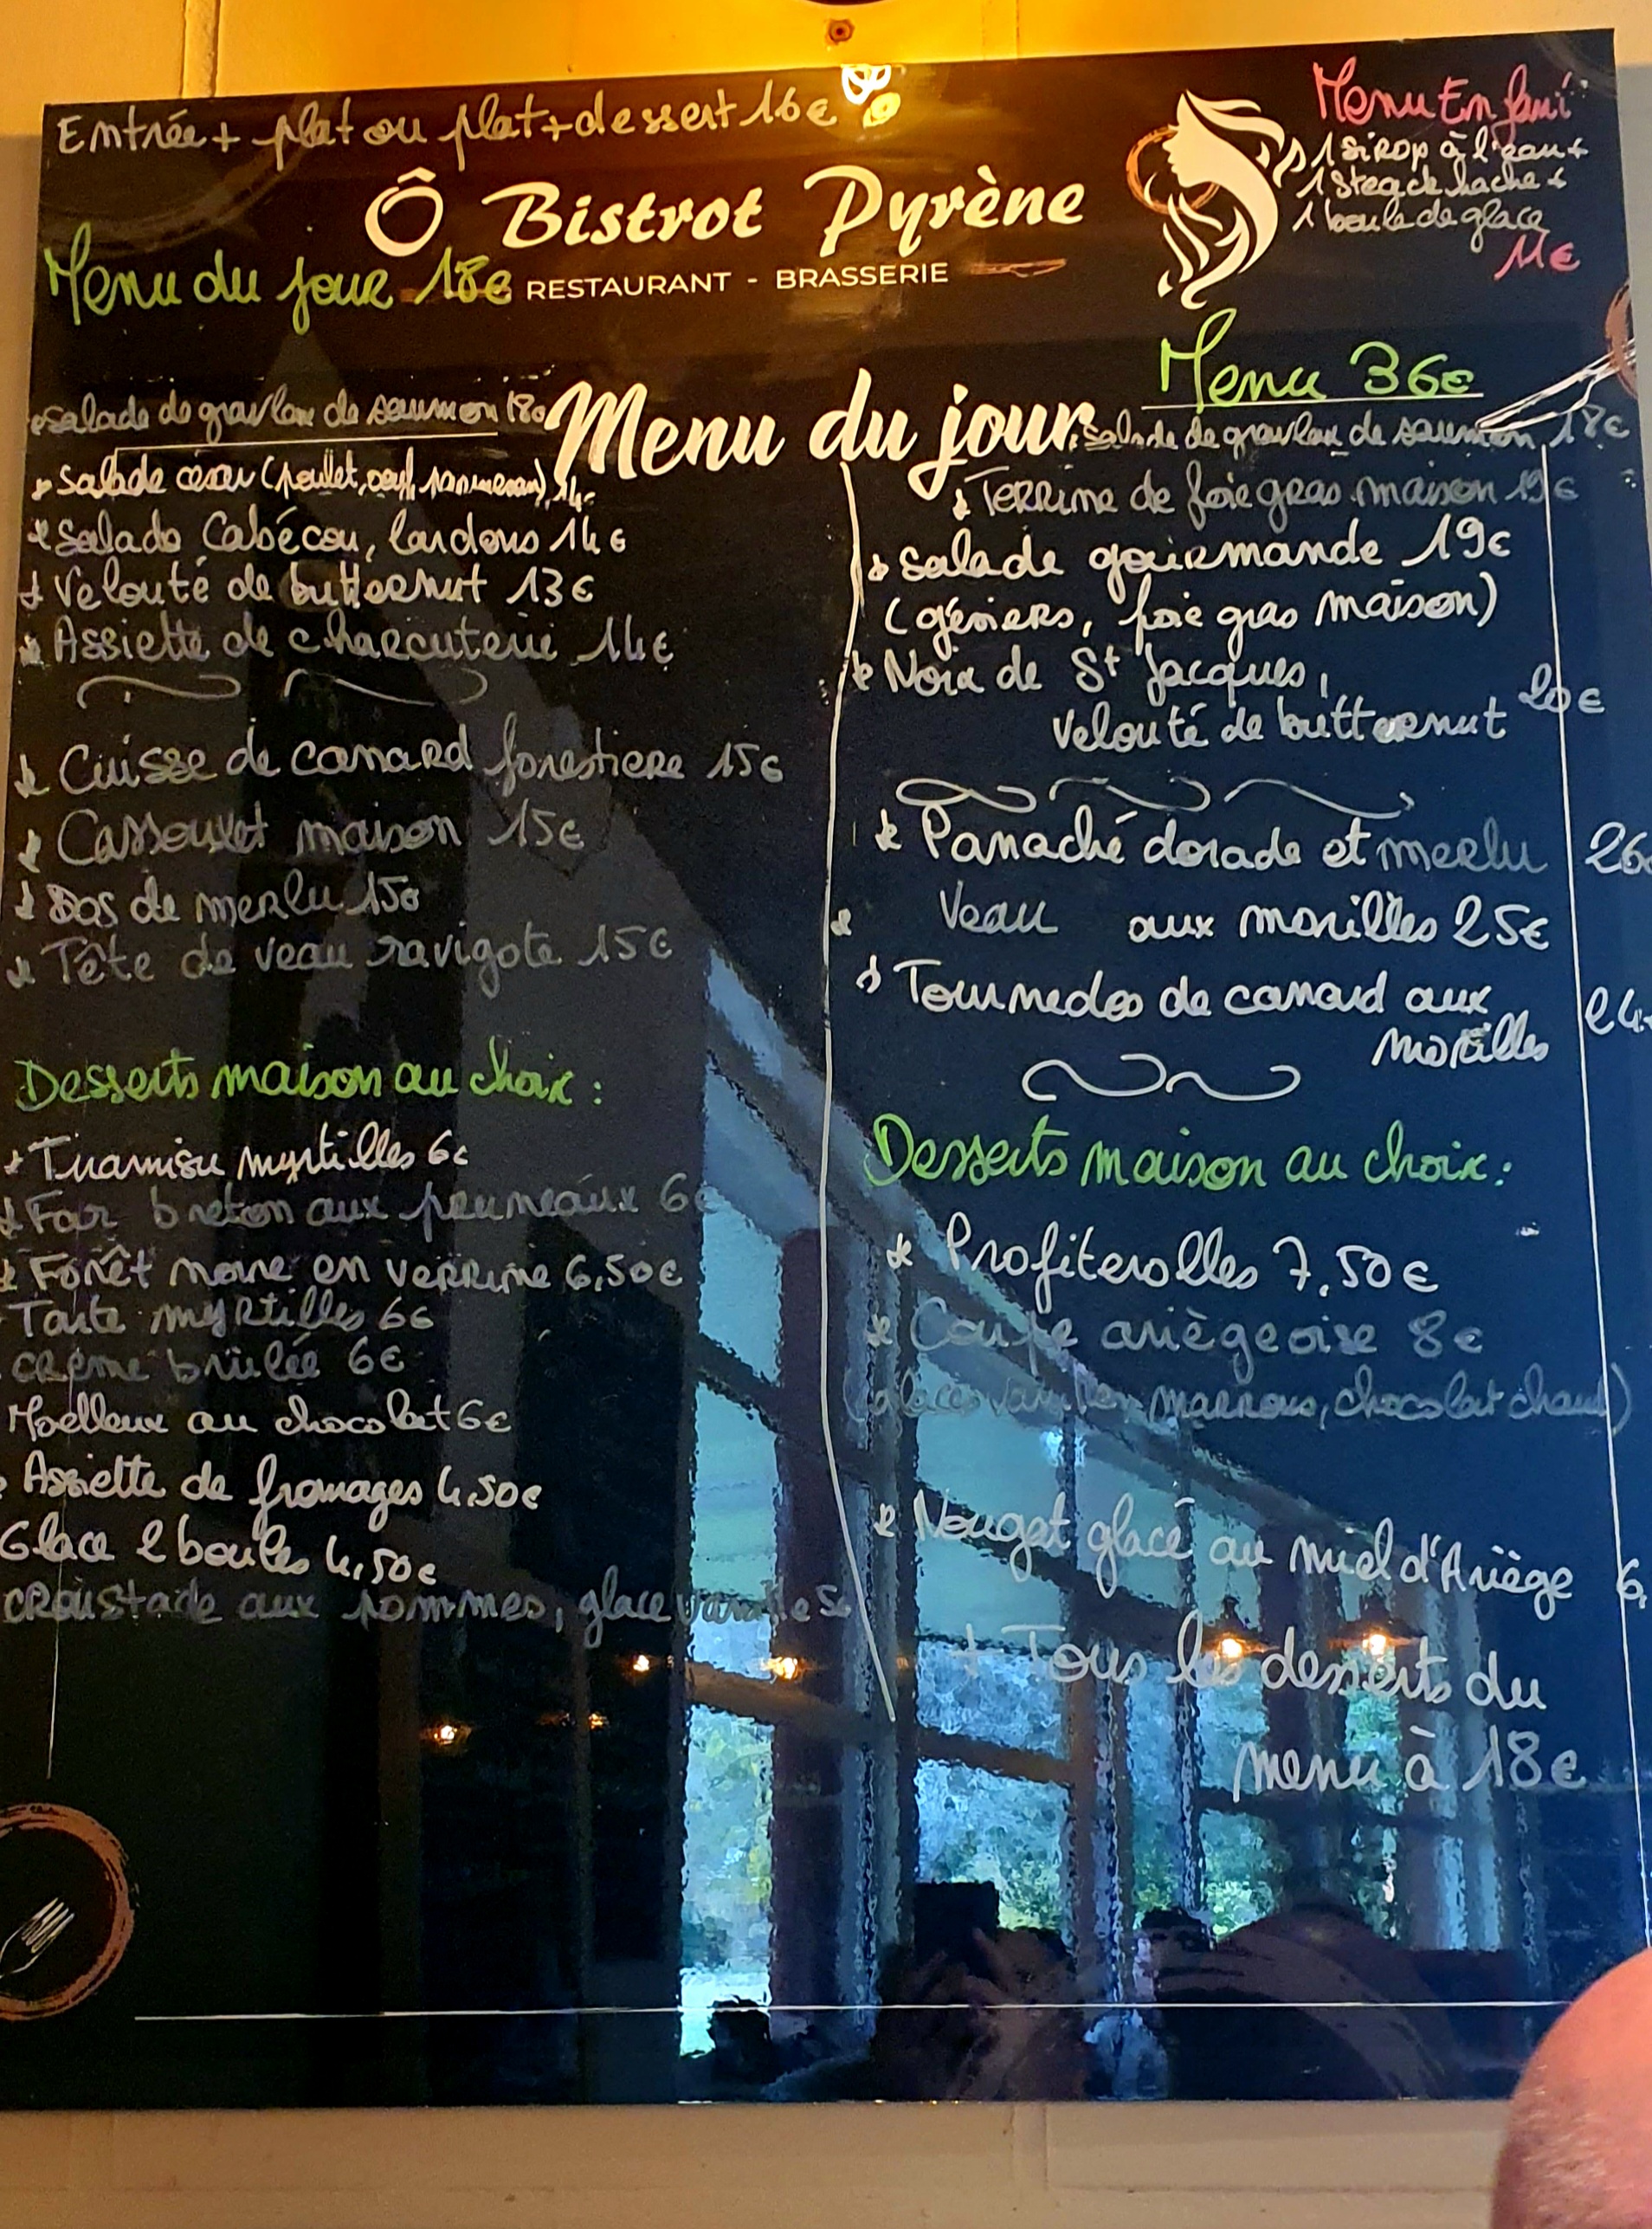 Entrée + plat ou plat + dessert 16€
Ô Bistrot Pyrène
RESTAURANT - BRASSERIE
Menu Enfant
1 sirop à l'eau +
1 steack haché +
1 boule de glace
11€
Menu du jour 18€
Menu du jour
Salade de gravlax de saumon 18€
Salade césar (poulet, oeuf, parmesan) 14€
Salade Cabécou, lardons 14€
Velouté de butternut 13€
Assiette de charcuterie 14€
Cuisse de canard forestiere 15€
Cassoulet maison 15€
Dos de merlu 15€
Tête de veau ravigote 15€
Desserts maison au choix :
Tiramisu myrtilles 6€
Far breton aux pruneaux 6€
Forêt noire en verrine 6,50€
Tarte myrtilles 6€
crème brûlée 6€
Moelleux au chocolat 6€
Assiette de fromages 4,50€
Glace 2 boules 4,50€
croustade aux pommes, glace vanille 5€
Menu 36€
Salade de gravlax de saumon 18€
Terrine de foie gras maison 19€
Salade gourmande 19€
(gésiers, foie gras maison)
Noix de St Jacques,
velouté de butternut 20€
Panaché dorade et merlu 26
Veau aux morilles 25€
Tournedos de canard aux
morilles 24
Desserts maison au choix :
Profiterolles 7,50€
Coupe ariègeoise 8€
marrons, chocolat chaud)
Nougat glacé au miel d'Ariège 6,
+ Tous les desserts du
menu à 18€